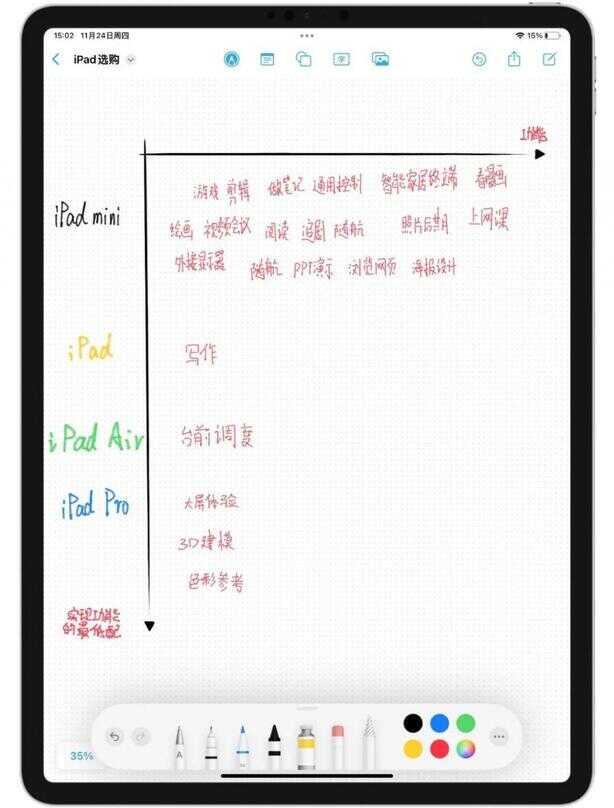 15:02 11月24日周四
15%
iPad选购
功能
游戏 剪辑 做笔记 通用控制 智能家居终端 看漫画
iPad mini
绘画 视频会议 阅读 追剧 随航 照片后期 上网课
外接显示器 随航 PPT演示 浏览网页 海报设计
iPad 写作
iPad Air 台前调度
iPad Pro 大屏体验
3D建模
色彩参考
实现功能
的最低配
35%